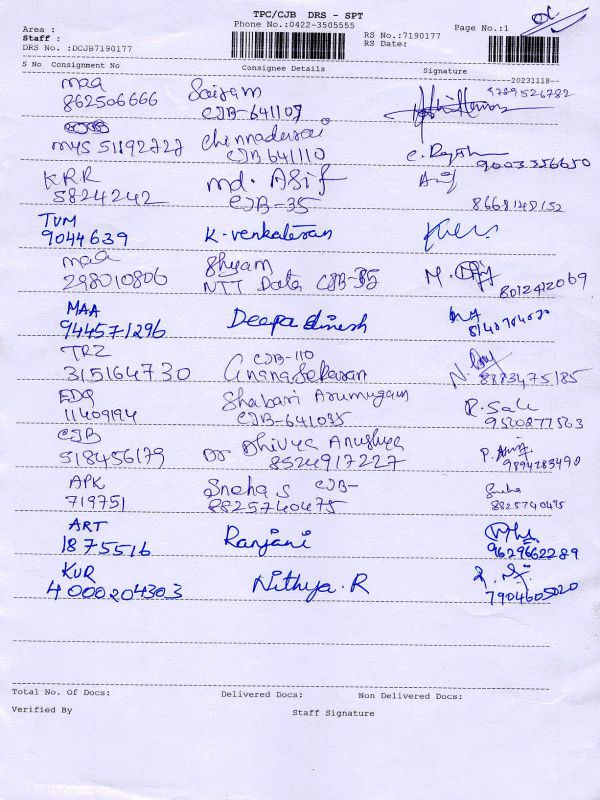 TPC/CJB DRS - SPT
Area : Phone No.:0422-3505555 Page No.:1
Staff : RS No.:7190177
DRS No. :DCJB7190177 RS Date:
S No Consignment No Consignee Details Signature
--20231118--
maa Sairam 9789526782
862506666 CJB-641107
Chennadurai
51892727 CJB 641110 C. Rajesh 9003356650
KRR md. Asif Asif
5824242 CJB-35 8668148152
TUM
9044639 K. venkatesan
maa Shyam
298010806 NTT Data CJB-35 M. 8012412069
MAA Deepa dinesh
944571296
TRZ CJB-110
315164730 Gnanasekaran N. 8383475185
EDQ Shabari Arumugam
11409194 CJB-641035 R. 9500277563
CJB Dr Dhivya Anushya P.
518456179 8524917227 9894283490
APK Sneha S CJB- Sneha
719751 8825740475 8825740475
ART Ranjani
1875516 9629662289
KUR Nithya.R
4000204303 7904605020
Total No. Of Docs: Delivered Docs: Non Delivered Docs:
Verified By Staff Signature